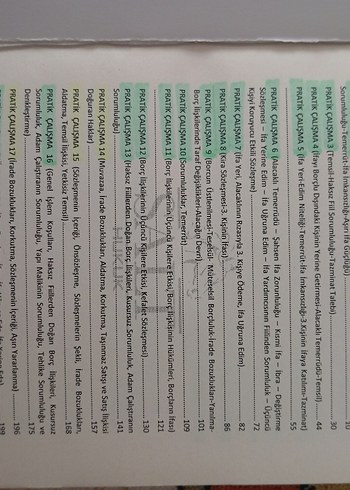 Sorumluluğu-Temerrüt-İfa İmkansızlığı-Aşırı İfa Güçlüğü)
PRATİK ÇALIŞMA 3 (Temsil-Haksız Fiil Sorumluluğu-Tazminat Talebi) 30
PRATİK ÇALIŞMA 4 (İfaya Borçlu Dışındaki Kişinin Yerine Getirmesi-Alacaklı Temerrüdü-Temsil) 44
PRATİK ÇALIŞMA 5 (İfa Yeri-Edim Niteliği-Temerrüt-İfa İmkansızlığı-3.Kişinin İfaya Katılımı-Tazminat)
55
PRATİK ÇALIŞMA 6 (Alacaklı Temerrüdü – Şahsen İfa Zorunluluğu – Kısmi İfa – İbra – Değiştirme
Sözleşmesi – İfa Yerine Edim – İfa Uğruna Edim – İfa Yardımcısının Fiilinden Sorumluluk – Üçüncü
Kişiyi Koruyucu Etkili Sözleşme) 72
PRATİK ÇALIŞMA 7 (İfa Yeri, Alacaklının Rızasıyla 3. Kişiye Ödeme, İfa Uğruna Edim) 82
PRATİK ÇALIŞMA 8 (Kira Sözleşmesi-3. Kişinin İfası) 86
PRATİK ÇALIŞMA 9 (Borcun Üstlenilmesi-Teselsül- Müteselsil Borçluluk-İrade Bozuklukları-Yanılma-
Borç İlişkilerinde Taraf Değişiklikleri-Alacağın Devri) 101
PRATİK ÇALIŞMA 10 (Sorumluluklar, Temerrüt) 109
PRATİK ÇALIŞMA 11 (Borç İlişkilerinin Üçüncü Kişilere Etkisi, Borç İlişkisinin Hükümleri, Borçların İfası)
121
PRATİK ÇALIŞMA 12 (Borç İlişkilerinin Üçüncü Kişilere Etkisi, Kefalet Sözleşmesi) 130
PRATİK ÇALIŞMA 13 (Haksız Fiilden Doğan Borç İlişkileri, Kusursuz Sorumluluk, Adam Çalıştıranın
Sorumluluğu) 141
PRATİK ÇALIŞMA 14 (Muvazaa, İrade Bozuklukları, Aldatma, Korkutma, Taşınmaz Satışı ve Satış İlişkisi
Doğuran Haklar) 157
PRATİK ÇALIŞMA 15 (Sözleşmenin İçeriği, Önsözleşme, Sözleşmelerin Şekli, İrade Bozuklukları,
Aldatma, Temsil İlişkisi, Yetkisiz Temsil) 168
PRATİK ÇALIŞMA 16 (Genel İşlem Koşulları, Haksız Fiillerden Doğan Borç İlişkileri, Kusursuz
Sorumluluk, Adam Çalıştıranın Sorumluluğu, Yapı Malikinin Sorumluluğu, Tehlike Sorumluluğu ve
Denkleştirme) 175
PRATİK ÇALIŞMA 17 (İrade Bozuklukları, Korkutma, Sözleşmenin İçeriği, Aşırı Yararlanma) 196
199
HUKUK